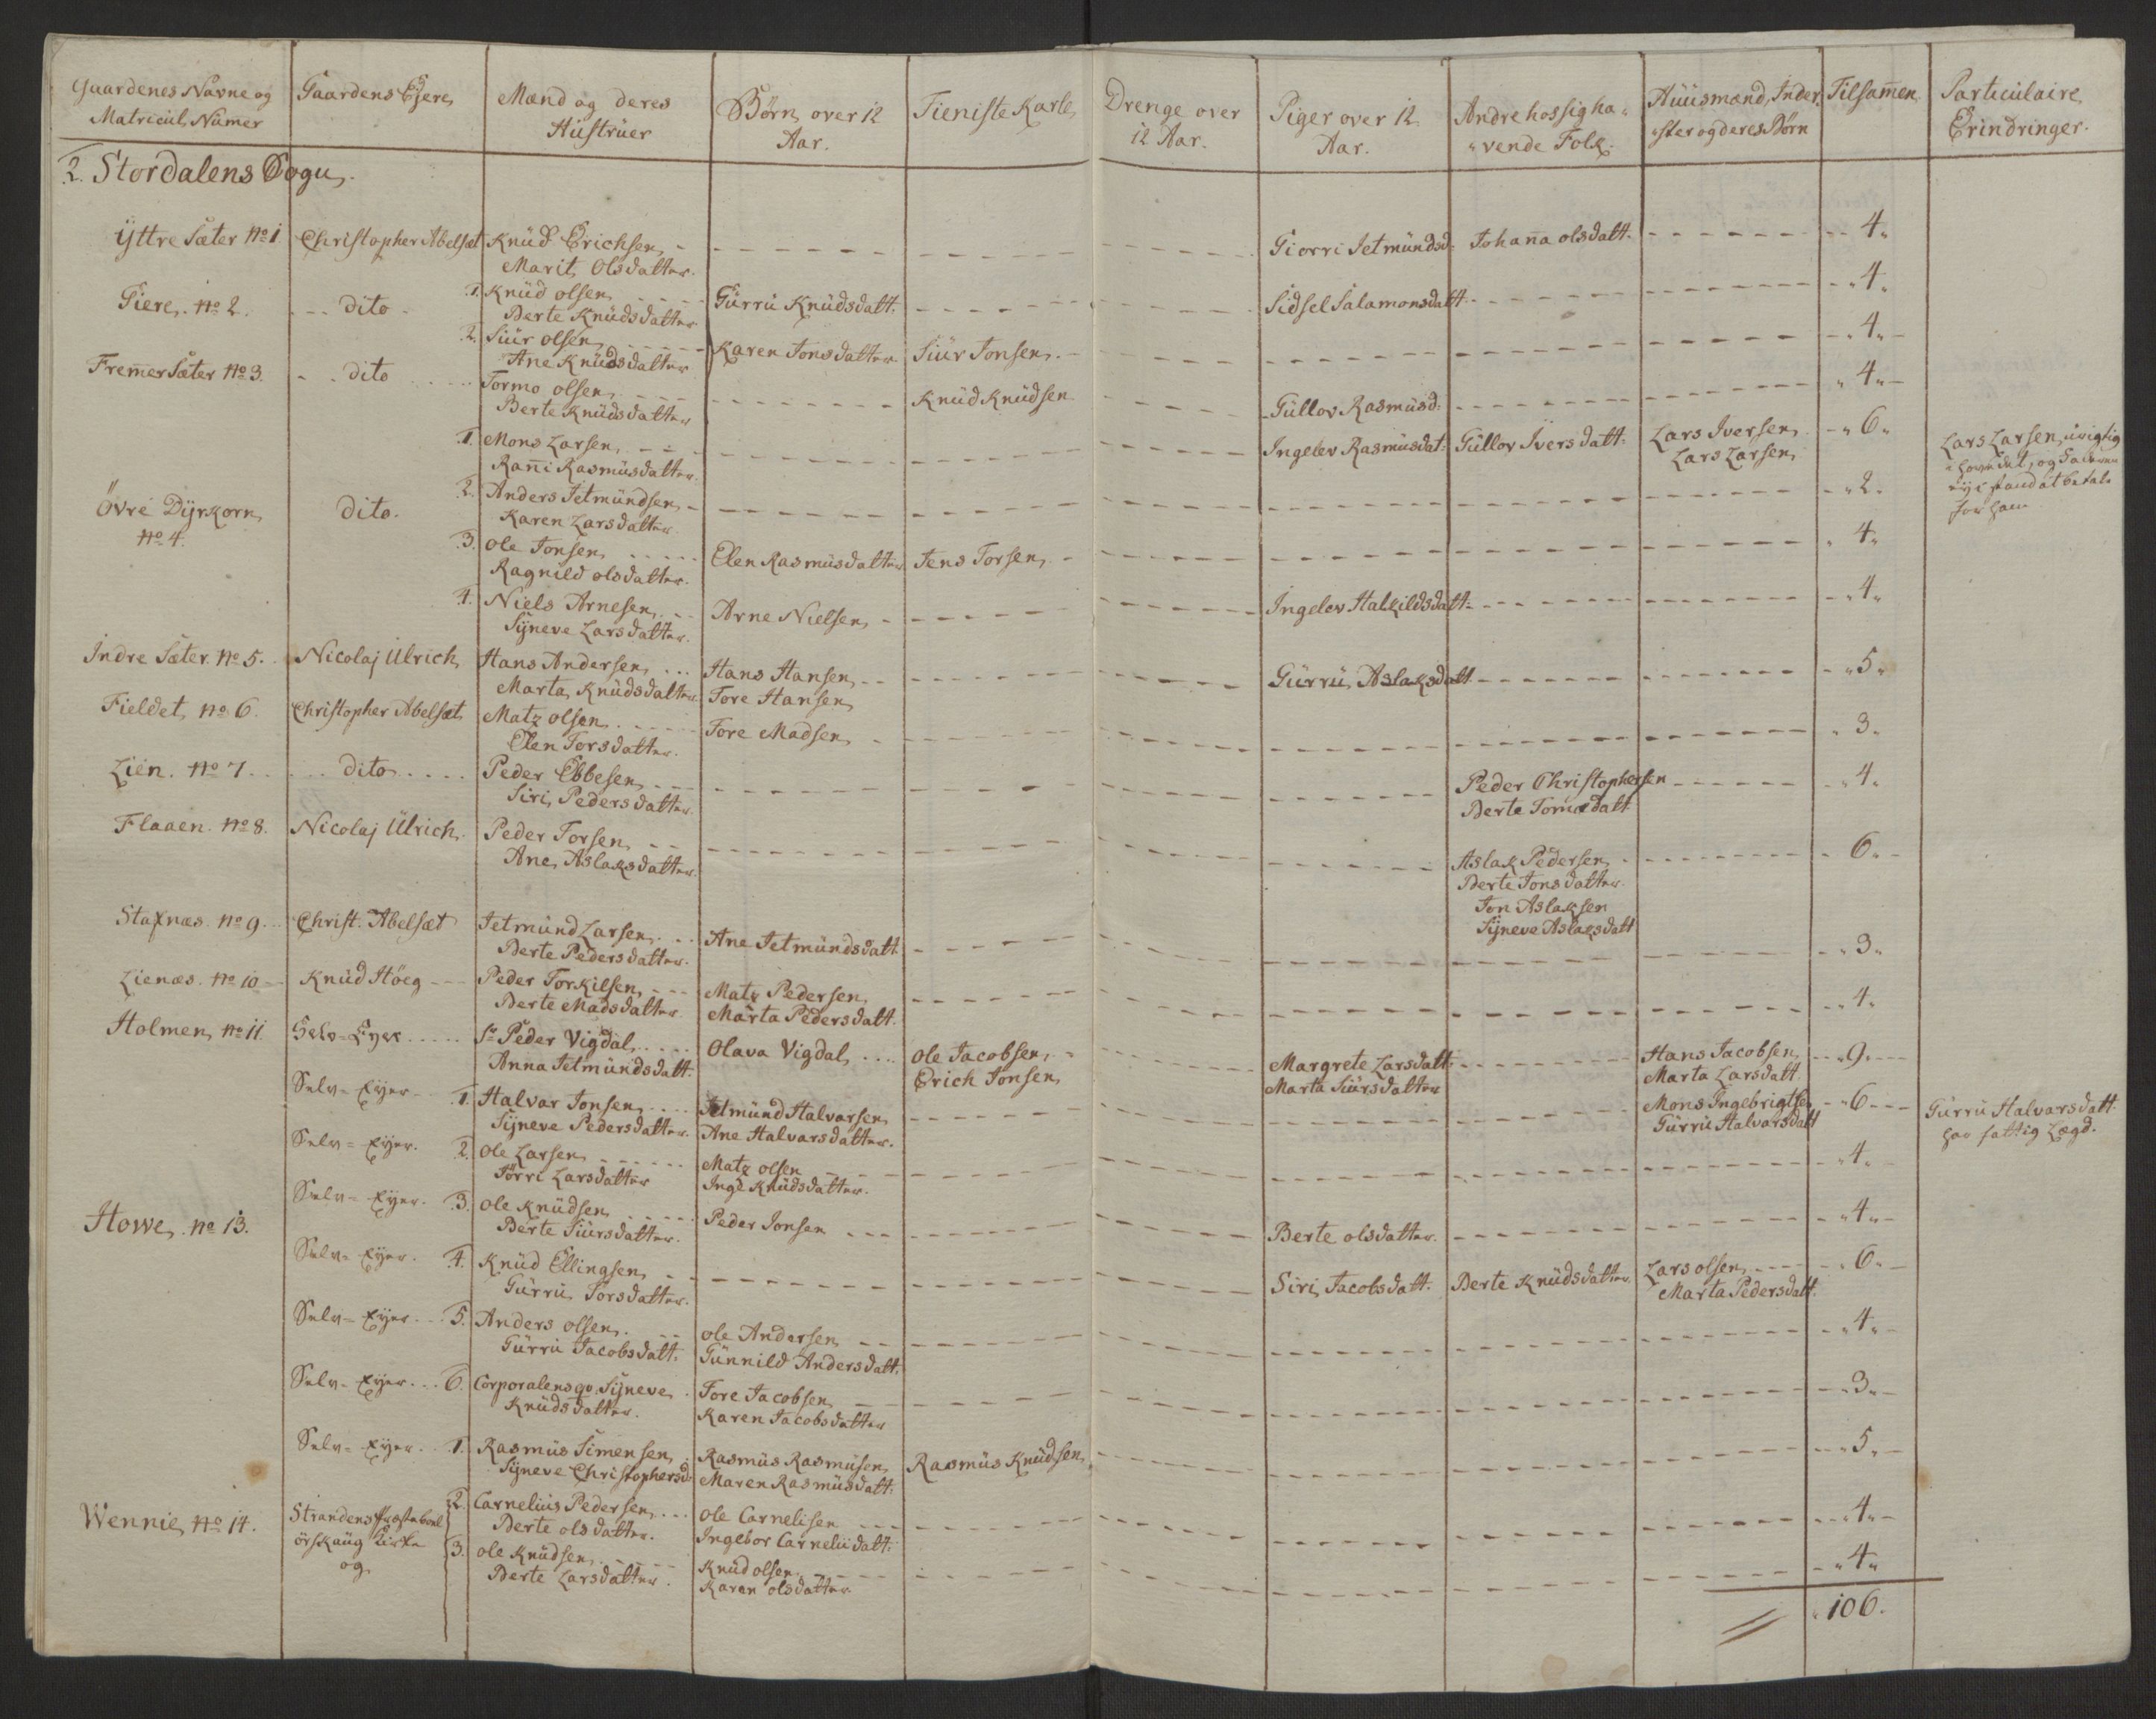 Gaardenes Navne og Matricul Numer | Gaardens Ejere | Mænd og deres Hustruer | Børn over 12 Aar. | Tieniste Karle | Drenge over 12 Aar. | Piger over 12 Aar. | Andre hos sig ha= vende Folk. | Huusmænd, Inder= ster og deres Børn | Tilsam̄en | Particulaire Erindringer.
2. Stordalens Sogn.
Yttre Sæter No 1 | Christopher Abelsæt | Knud Erichsen | Giorri Jetmundsd: | Johan̄a olsdatt. | 4.
Marit Olsdatter.
Giere. No 2. | dito | 1. Knud olsen | Gurru Knudsdatt. | Sidsel Salamonsdatt | 4.
Berte Knudsdatter
2. Siur olsen | Karen Jonsdatter | Siur Jonsen. | 4.
Ane Knudsdatter
Frem̄er Sæter No 3. | dito | Tormo olsen | Knud Knudsen | Gullov Rasmusd: | 4.
Berte Knudsdatter
1. Mons Larsen | Ingelev Rasmusdat: | Gullov Iversdatt: | Lars Iversen | 6. | Lars Larsen urigtig
Ran̄i Rasmusdatter. | Lars Larsen
Øvre Dyrkorn No 4. | dito. | 2. Anders Jetmundsen | 2.
Karen Larsdatter.
3. Ole Jonsen | Elen Rasmusdatter | Jens Torsen | 4.
Ragnild olsdatter.
4. Niels Arnesen | Arne Nielsen | Ingelev Halkildsdatt: | 4.
Syneve Larsdatter.
Indre Sæter. No 5. | Nicolaj Ulrich | Hans Andersen | Hans Hansen | Gurru Aslaksdatt | 5.
Marta Knudsdatter | Tore Hansen
Fieldet No 6. | Christopher Abelsæt | Matz olsen | Tore Madsen | 3.
Elen Torsdatter.
Lien. No 7. | dito | Peder Ebbesen | Peder Christophersen | 4.
Siri Pedersdatter. | Berte Tomædatt
Flaaen. No 8. | Nicolaj Ulrich. | Peder Torsen | Aslak Pedersen | 6.
Ane Aslaksdatter. | Berte Jonsdatter.
Jon Aslaksen
Syneve Aslaksdatt
Stafnæs. No 9. | Christ. Abelsæt | Jetmund Larsen | Ane Jetmundsdatt. | 3.
Berte Pedersdatter.
Lienæs. No 10 | Knud Høeg | Peder Torkilsen | Matz Pedersen | 4.
Berte Madsdatter | Marta Pedersdatt.
Holmen No 11. | Selv=Eyer | Sr Peder Vigdal | Olava Vigdal | Ole Jacobsen | Margrete Larsdatt: | Hans Jacobsen | 9.
Anna Jetmundsdatt. | Erich Jonsen | Marta Siursdatter | Marta Larsdatt.
Selv=Eyer | 1. Halvar Jonsen | Jetmund Halvarsen | Mons Ingebrigtsen | 6. | Gurru Halvarsdatt.
Syneve Pedersdatter. | Ane Halvarsdatter. | Gurru Halvarsdatt | har fattig Lægd.
Selv=Eyer. | 2. Ole Larsen | Matz olsen | 4.
Jørri Larsdatter | Inge Knudsdatter.
Howe. No 13. | Selv=Eyer. | 3. Ole Knudsen | Peder Jonsen | Berte olsdatter. | 4.
Berte Siursdatter.
Selv=Eyer. | 4. Knud Ellingsen | Siri Jacobsdatt. | Berte Knudsdatter | Lars olsen | 6.
Gurru Torsdatter. | Marta Pedersdatt.
Selv=Eyer | 5. Anders olsen | ole Andersen | 4.
Gurru Jacobsdatt. | Gunnild Andersdatt.
Selv=Eyer | 6. Corporalens qv. Syneve | Tore Jacobsen | 3.
Knudsdatter. | Karen Jacobsdatter
Selv=Eyer. | 1. Rasmus Simensen | Rasmus Rasmusen | Rasmus Knudsen | 5.
Syneve Christophersd: | Maren Rasmusdatt.
Wennie No 14. | Strandens Præsteboel | 2. Carnelius Pedersen | ole Carnelisen | 4.
ørskaug Kirke | Berte olsdatter. | Ingebor Carneliidatt:
og | 3. ole Knudsen | Knud olsen | 4.
Berte Larsdatter. | Karen olsdatter
106.